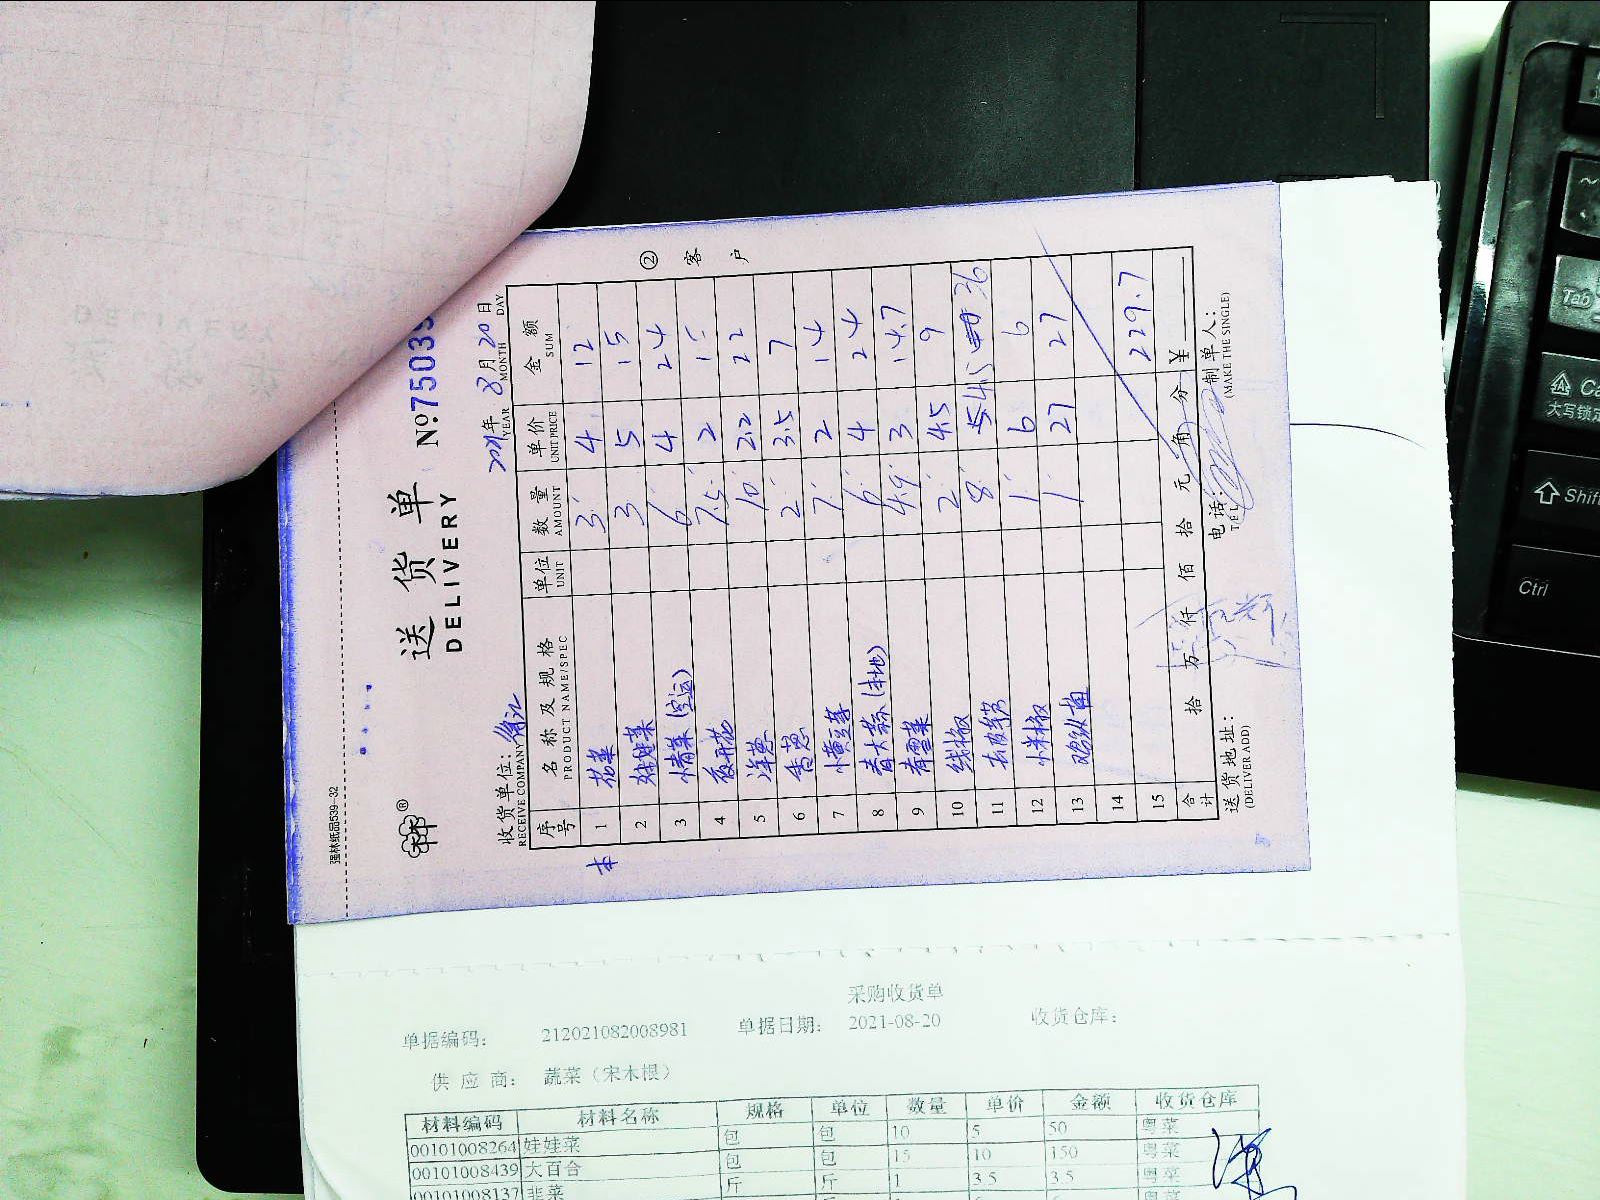 强林纸品539-32
送货单
DELIVERY
№75039
收货单位:
RECEIVE COMPANY
2021年 8月 20日
YEAR MONTH DAY
② 客户
序号 名称及规格 单位 数量 单价 金额
PRODUCT NAME/SPEC UNIT AMOUNT UNIT PRICE SUM
本
1 花菜 3 4 12
2 娃娃菜 3 5 15
3 6 4 24
4 夜开花 7.5 2 15
5 洋葱 10 2.2 22
6 香葱 2 3.5 7
7 小黄豆芽 7 2 14
8 青大蒜(本地) 6 4 24
9 4.9 3 14.7
10 线椒 2 4.5 9
11 8 4.5 36
12 小米椒 1 6 6
13 1 27 27
14 229.7
15
合计 拾 万 仟 佰 拾 元 角 分 ¥
送货地址: 电话: 制单人:
(DELIVER ADD) TEL (MAKE THE SINGLE)
采购收货单
单据编码: 212021082008981 单据日期: 2021-08-20 收货仓库:
供应商: 蔬菜(宋本根)
材料编码 材料名称 规格 单位 数量 单价 金额 收货仓库
00101008264 娃娃菜 包 包 10 5 50 粤菜
00101008439 大百合 包 包 15 10 150 粤菜
00101008137 韭菜 斤 斤 1 3.5 3.5 粤菜
Tab
大写锁定
Shift
Ctrl